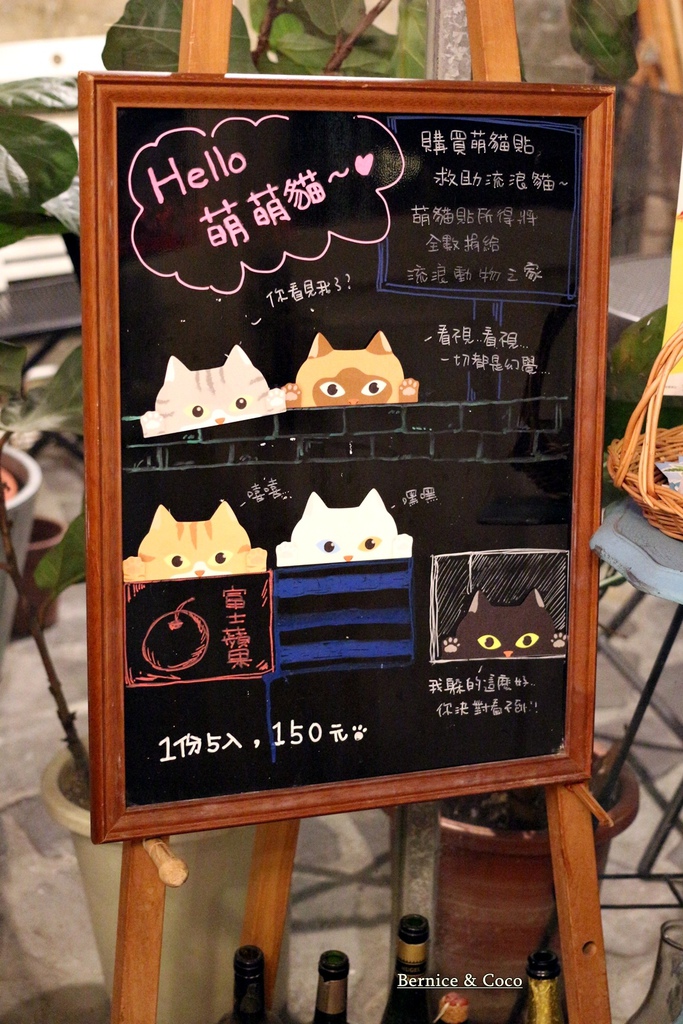 Hello
萌萌貓~
購買萌貓貼
救助流浪貓~
萌貓貼所得將
全數捐給
流浪動物之家
你看見我了?
看視..看視...
一切都是幻覺...
嘻嘻...
嘿嘿
富士蘋果
我躲的這麼好..
你決對看不到!
1份5入,150元
Bernice & Coco